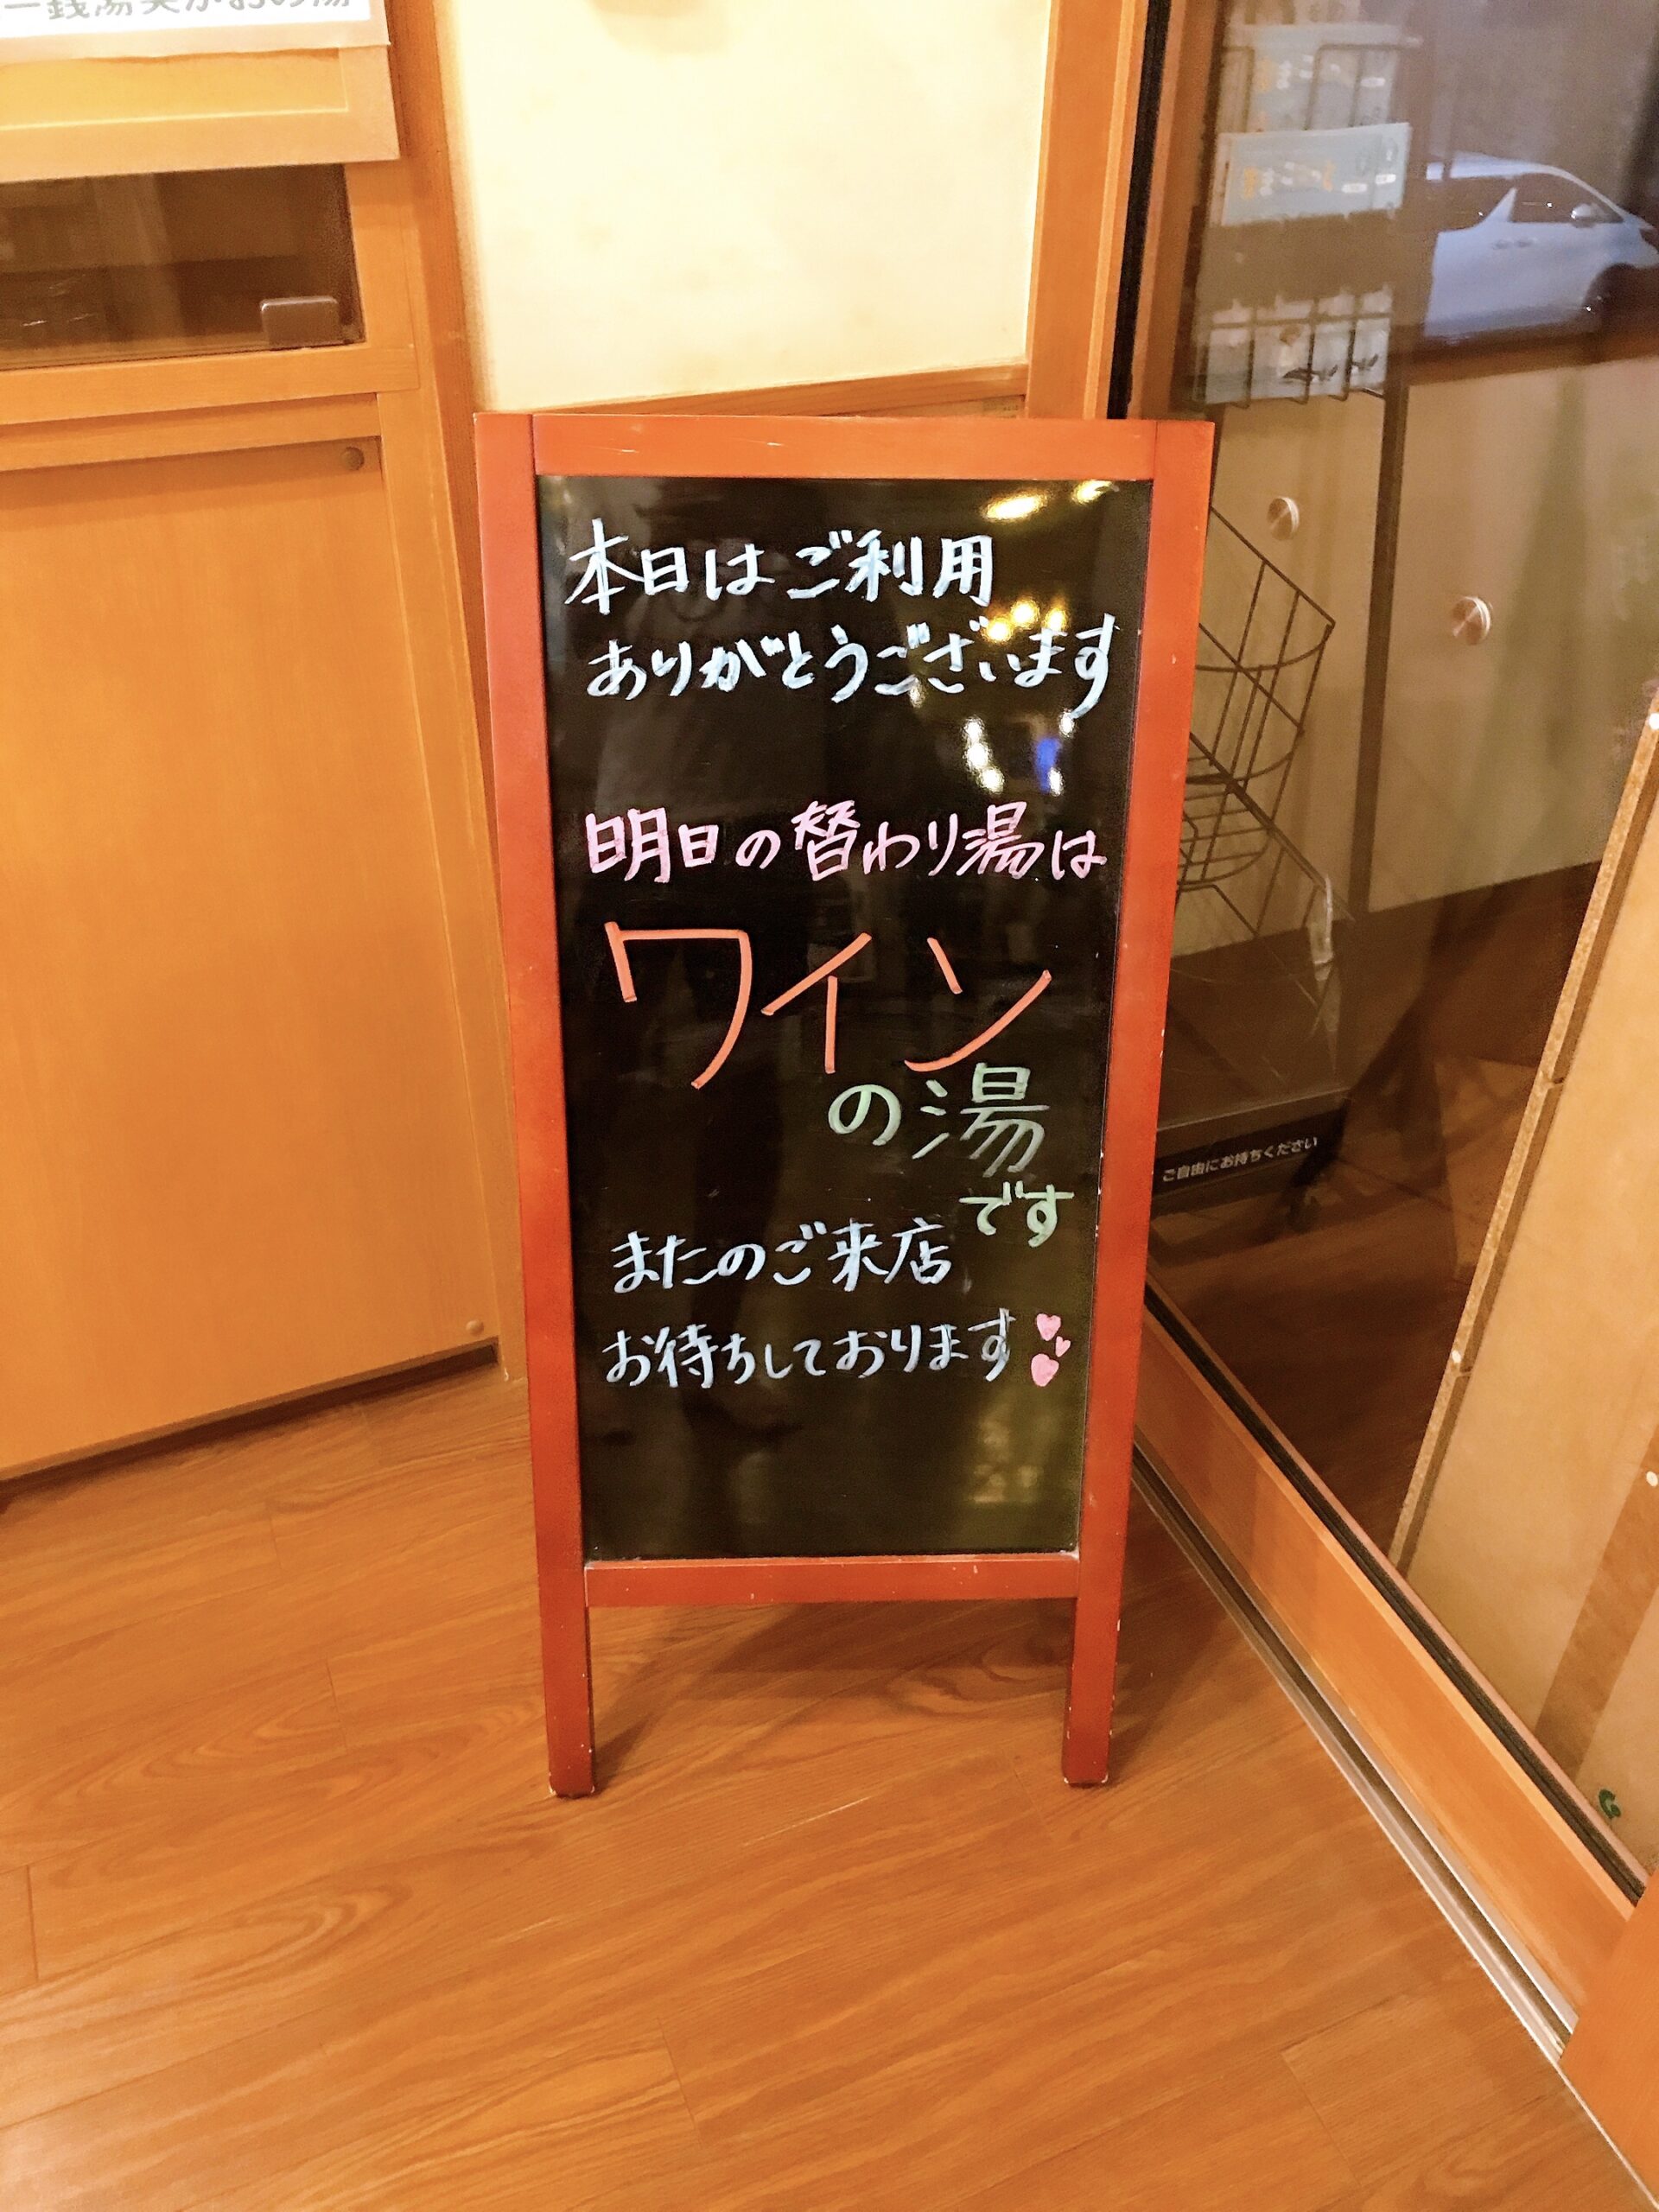 本日はご利用
ありがとうございます
明日の替わり湯は
ワイン
の湯
です
またのご来店
お待ちしております
ご自由にお持ちください